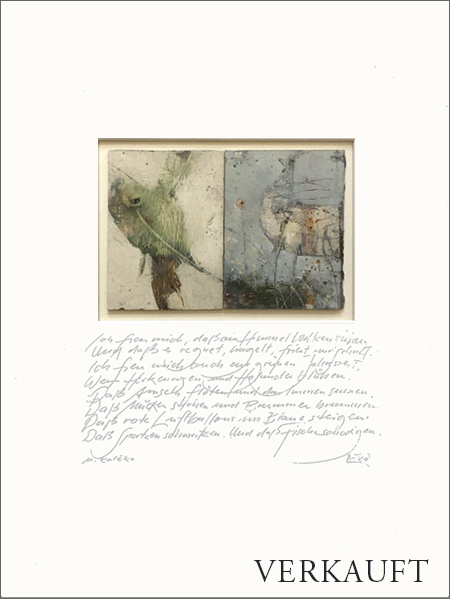 Ich freu mich, daß am Himmel Wolken ziehen
Und daß es regnet, hagelt, friert und schneit.
Ich freu mich auch zur grünen Jahreszeit,
Wenn Heckenrosen und Holunder blühen.
Daß Amseln flöten und daß Immen summen.
Daß Mücken stechen und Brummer brummen.
Daß rote Luftballons ins Blaue steigen.
Daß Spatzen schwatzen. Und daß Fische schweigen.
M. Kaléko
VERKAUFT